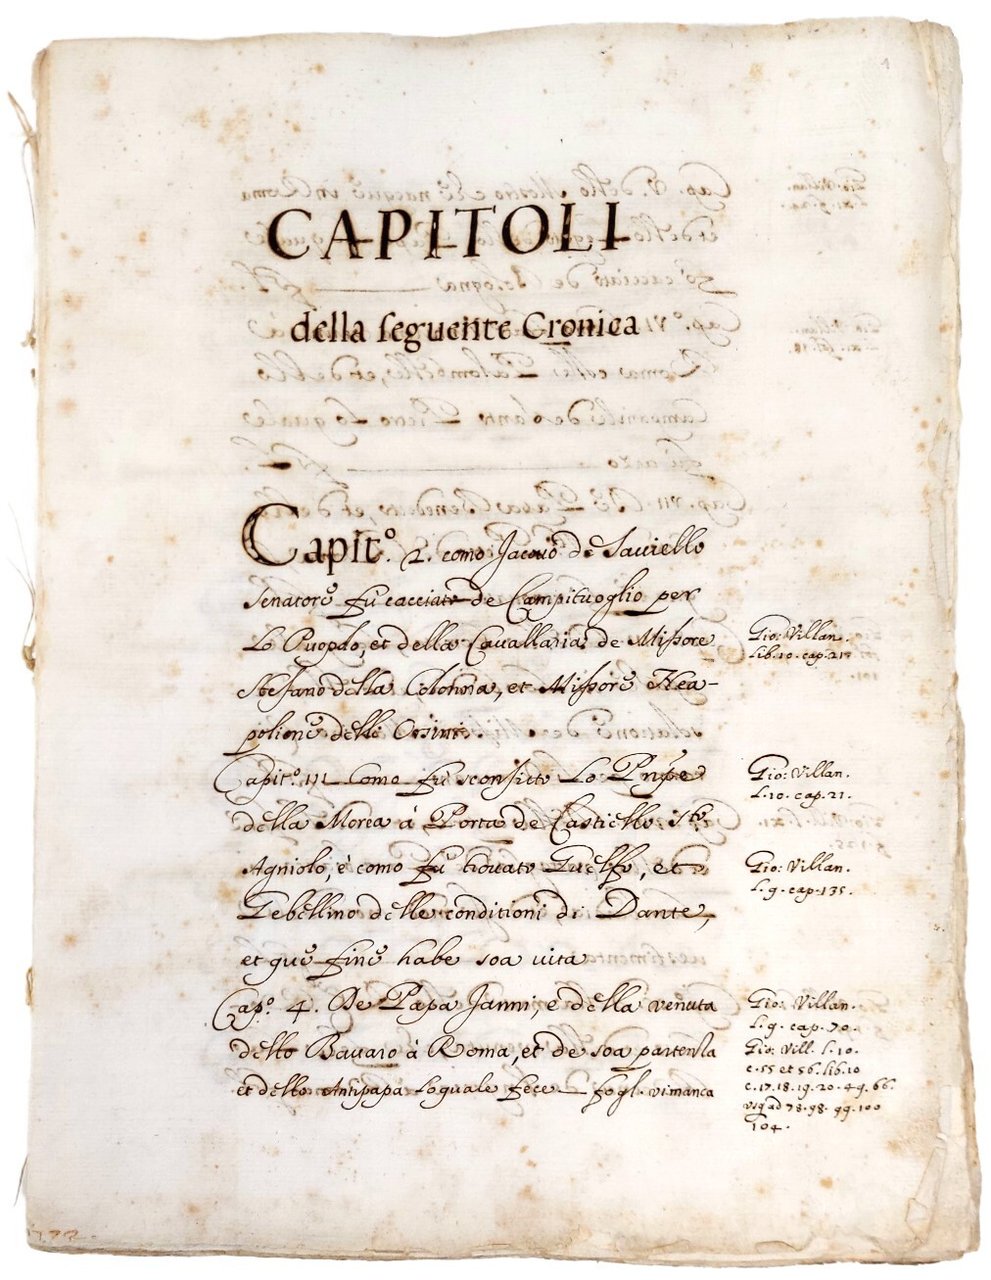 CAPITOLI
della seguente Cronica
Capit.º 2. como Jacovo de Saviello
Senatore fù cacciato de Campituoglio per
Lo Puopolo, et della Cavallaria de Missore
Stefano della Colonna, et Missore Nea-
polione delli Orsini.
Capit.º III Como fù sconficto Lo Prĩpe
della Morea à Porta de Castiello Sto.
Agniolo, è como fù trovato Guelfo, et
Gebellino delle conditioni di Dante,
et que fine habe soa vita
Cap.º 4. De Papa Janni, e della venuta
dello Bavaro à Roma, et de soa partenza
et dello Antipapa loquale fece fogl. vi manca
Gio: Villan.
Lib. 10. cap. 21.
Gio: Villan.
L. 10. cap. 21.
Gio: Villan.
L. 9. cap. 135.
Gio: Villan.
L. 9. cap. 70.
Gio: Vill. L. 10.
c. 55 et 56. lib. 10
c. 17. 18. 19. 20. 49. 66.
78. 98. 99. 100
104.